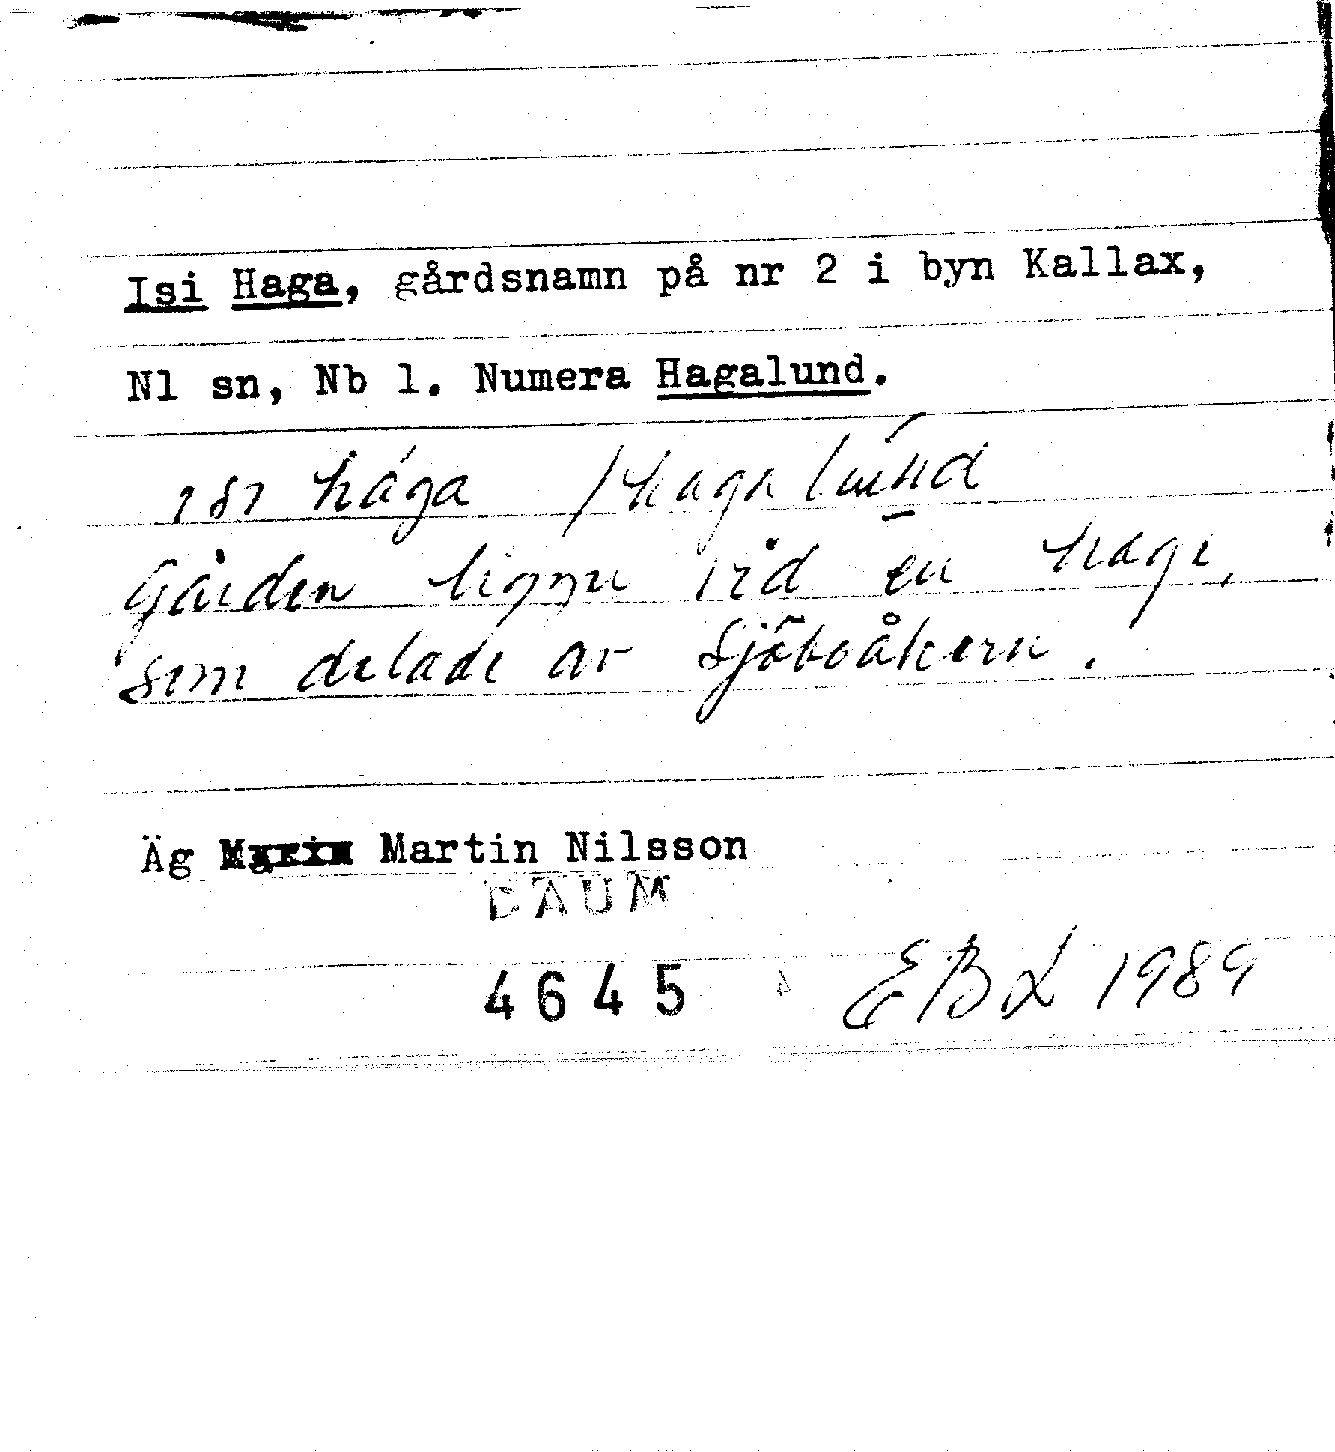 Isi Haga, gårdsnamn på nr 2 i byn Kallax,
Nl sn, Nb l. Numera Hagalund.
ısı hága / hagalund
Gården ligger vid en hage,
som delade av Sjöboåkern.
Äg Martin Nilsson
DAUM
4645 EBL 1989